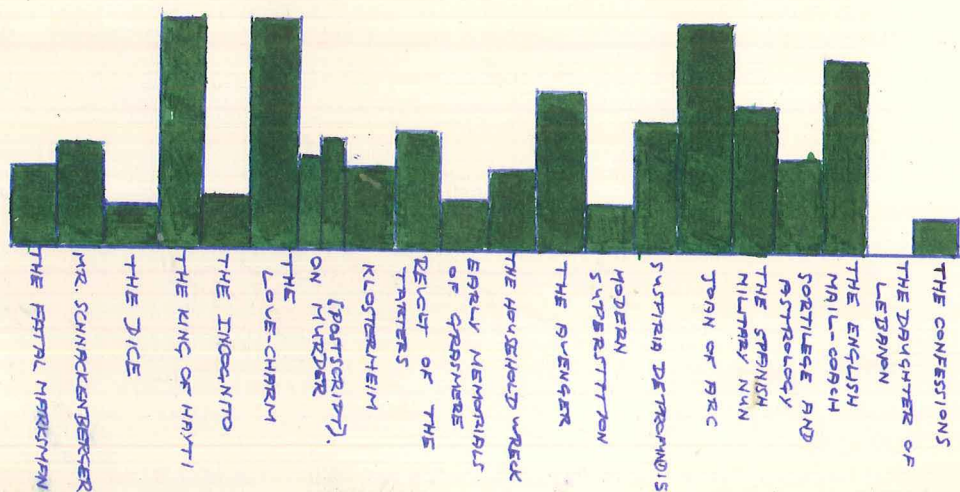 THE FATAL MARKSMAN
MR. SCHNACKENBERGER
THE DICE
THE KING OF HAYTI
THE INCOGNITO
THE
LOVE-CHARM
ON MURDER
[POSTSCRIPT].
KLOSTERHEIM
REVOLT OF THE
TARTERS
EARLY MEMORIALS
OF GRASMERE
THE HOUSEHOLD WRECK
THE AVENGER
MODERN
SUPERSTITION
SUSPIRIA DE PROFUNDIS
JOAN OF ARC
THE SPANISH
MILITARY NUN
SORTILEGE AND
ASTROLOGY
THE ENGLISH
MAIL-COACH
THE DAUGHTER OF
LEBANON
THE CONFESSIONS